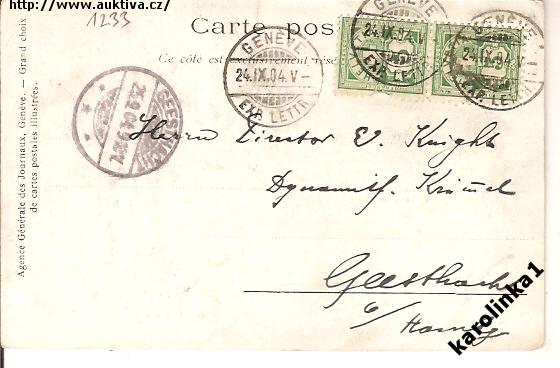 http://www.auktiva.cz/
1233
Carte pos
Ce côté est exclusivement rése
GENÈVE
24.IX.04.V-
EXP. LETTR.
GENÈVE
24.IX.04
EXP. LET
GENÈVE
.IX.04.
EXP. LET
Agence Générale des Journaux, Genève. — Grand choix
de cartes postales illustrées.
Herrn Director E. Knight
Dynamitf. Krümel
Geesthacht
b/
karolinka1